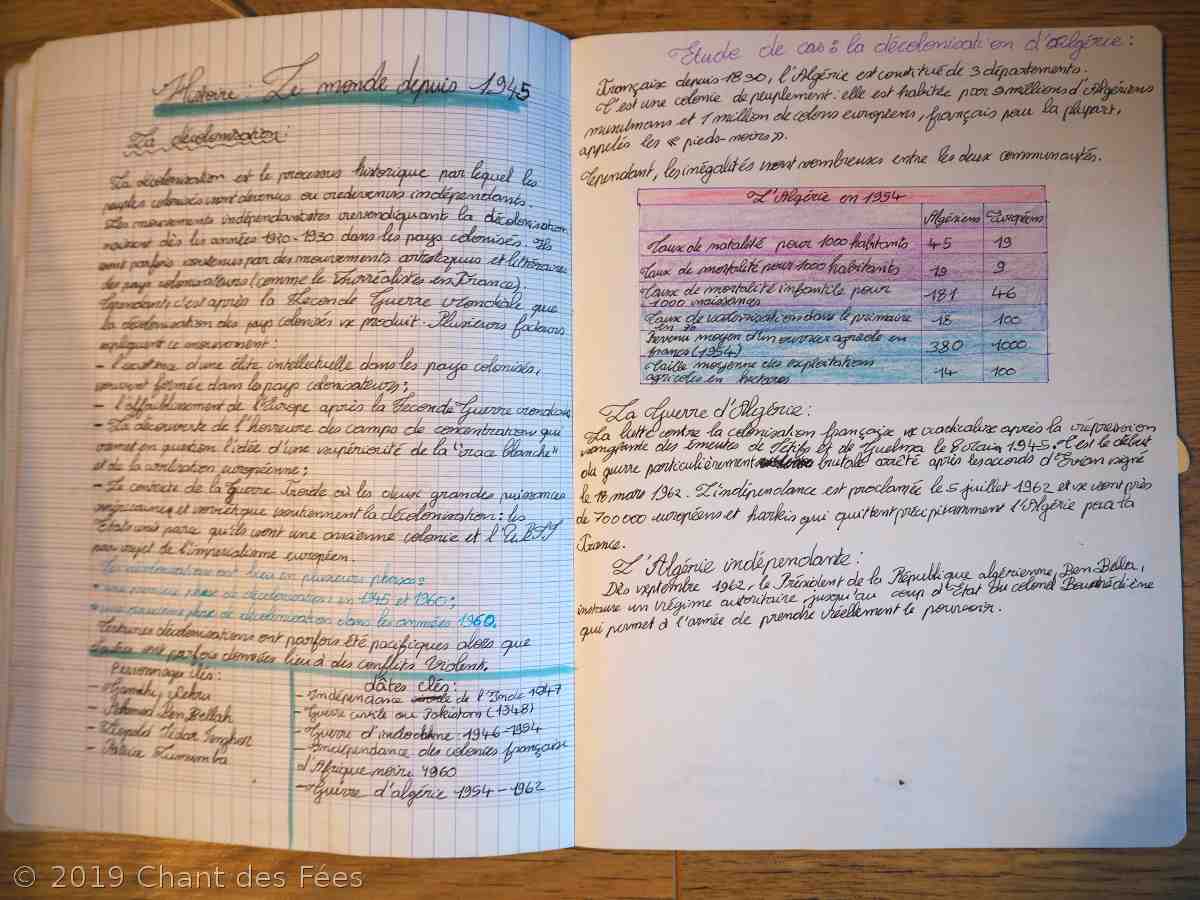 Histoire : Le monde depuis 1945
La décolonisation :
La décolonisation est le processus historique par lequel les
peuples colonisés sont devenus ou redevenus indépendants.
Les mouvements indépendantistes revendiquant la décolonisation
naissent dès les années 1920-1930 dans les pays colonisés. Ils
sont parfois soutenus par des mouvements artistiques et littéraires
des pays colonisateurs (comme le Surréalistes en France).
Cependant c'est après la Seconde Guerre mondiale que
la décolonisation des pays colonisés se produit. Plusieurs facteurs
expliquent ce mouvement :
- l'existence d'une élite intellectuelle dans les pays colonisés,
souvent formée dans les pays colonisateurs ;
- l'affaiblissement de l'Europe après la Seconde Guerre mondiale
- La découverte de l'horreur des camps de concentration qui
remet en question l'idée d'une supériorité de la "race blanche"
et de la civilisation européenne ;
- Le contexte de la Guerre Froide où les deux grandes puissances
américaines et soviétique soutiennent la décolonisation : les
Etats-Unis parce qu'ils sont une ancienne colonie et l'URSS
par rejet de l'impérialisme européen.
Les décolonisations ont lieu en plusieurs phases :
* une première phase de décolonisation en 1945 et 1960 ;
* une deuxième phase de décolonisation dans les années 1960.
Certaines décolonisations ont parfois été pacifiques alors que
d'autres ont parfois données lieu à des conflits violent.
Personnages clés :
- Gandhi, Nehru
- Mohamed Ben Bellah
- Léopold Sédar Senghor
- Patrice Lumumba
dâtes clés :
- Indépendance de l'Inde 1947
- Guerre civile au Pakistan (1948)
- Guerre d'indochine : 1946-1954
- Indépendance des colonies française
d'Afrique noire 1960
- Guerre d'algérie 1954 - 1962
Etude de cas : la décolonisation d'Algérie :
Française depuis 1830, l'Algérie est constitué de 3 départements.
C'est une colonie de peuplement : elle est habitée par 9 millions d'Algériens
musulmans et 1 million de colons européens, français pour la plupart,
appelés les « pieds-noirs ».
Cependant, les inégalités sont nombreuses entre les deux communautés.
L'Algérie en 1954
Algériens Européens
Taux de natalité pour 1000 habitants 45 19
Taux de mortalité pour 1000 habitants 19 9
Taux de mortalité infantile pour
1000 naissances 181 46
Taux de scolarisation dans le primaire
en % 18 100
Revenu moyen d'un ouvrier agricole en
francs (1954) 380 1000
Taille moyenne des exploitations
agricoles en hectares 14 100
La Guerre d'Algérie :
La lutte contre la colonisation française se radicalise après la répression
sanglante des émeutes de Sétif et de Guelma le 8 mai 1945. C'est le début
du guerre particulièrement brutale arrêté après les accords d'Evian signé
le 18 mars 1962. L'indépendance est proclamée le 5 juillet 1962 et se sont près
de 700 000 européens et harkis qui quittent précipitamment l'Algérie pour la
France.
L'Algérie indépendante :
Dès septembre 1962, le Président de la République algérienne, Ben Bella,
instaure un régime autoritaire jusqu'au coup d'Etat du colonel Boumédiène
qui permet à l'armée de prendre réellement le pouvoir.
© 2019 Chant des Fées